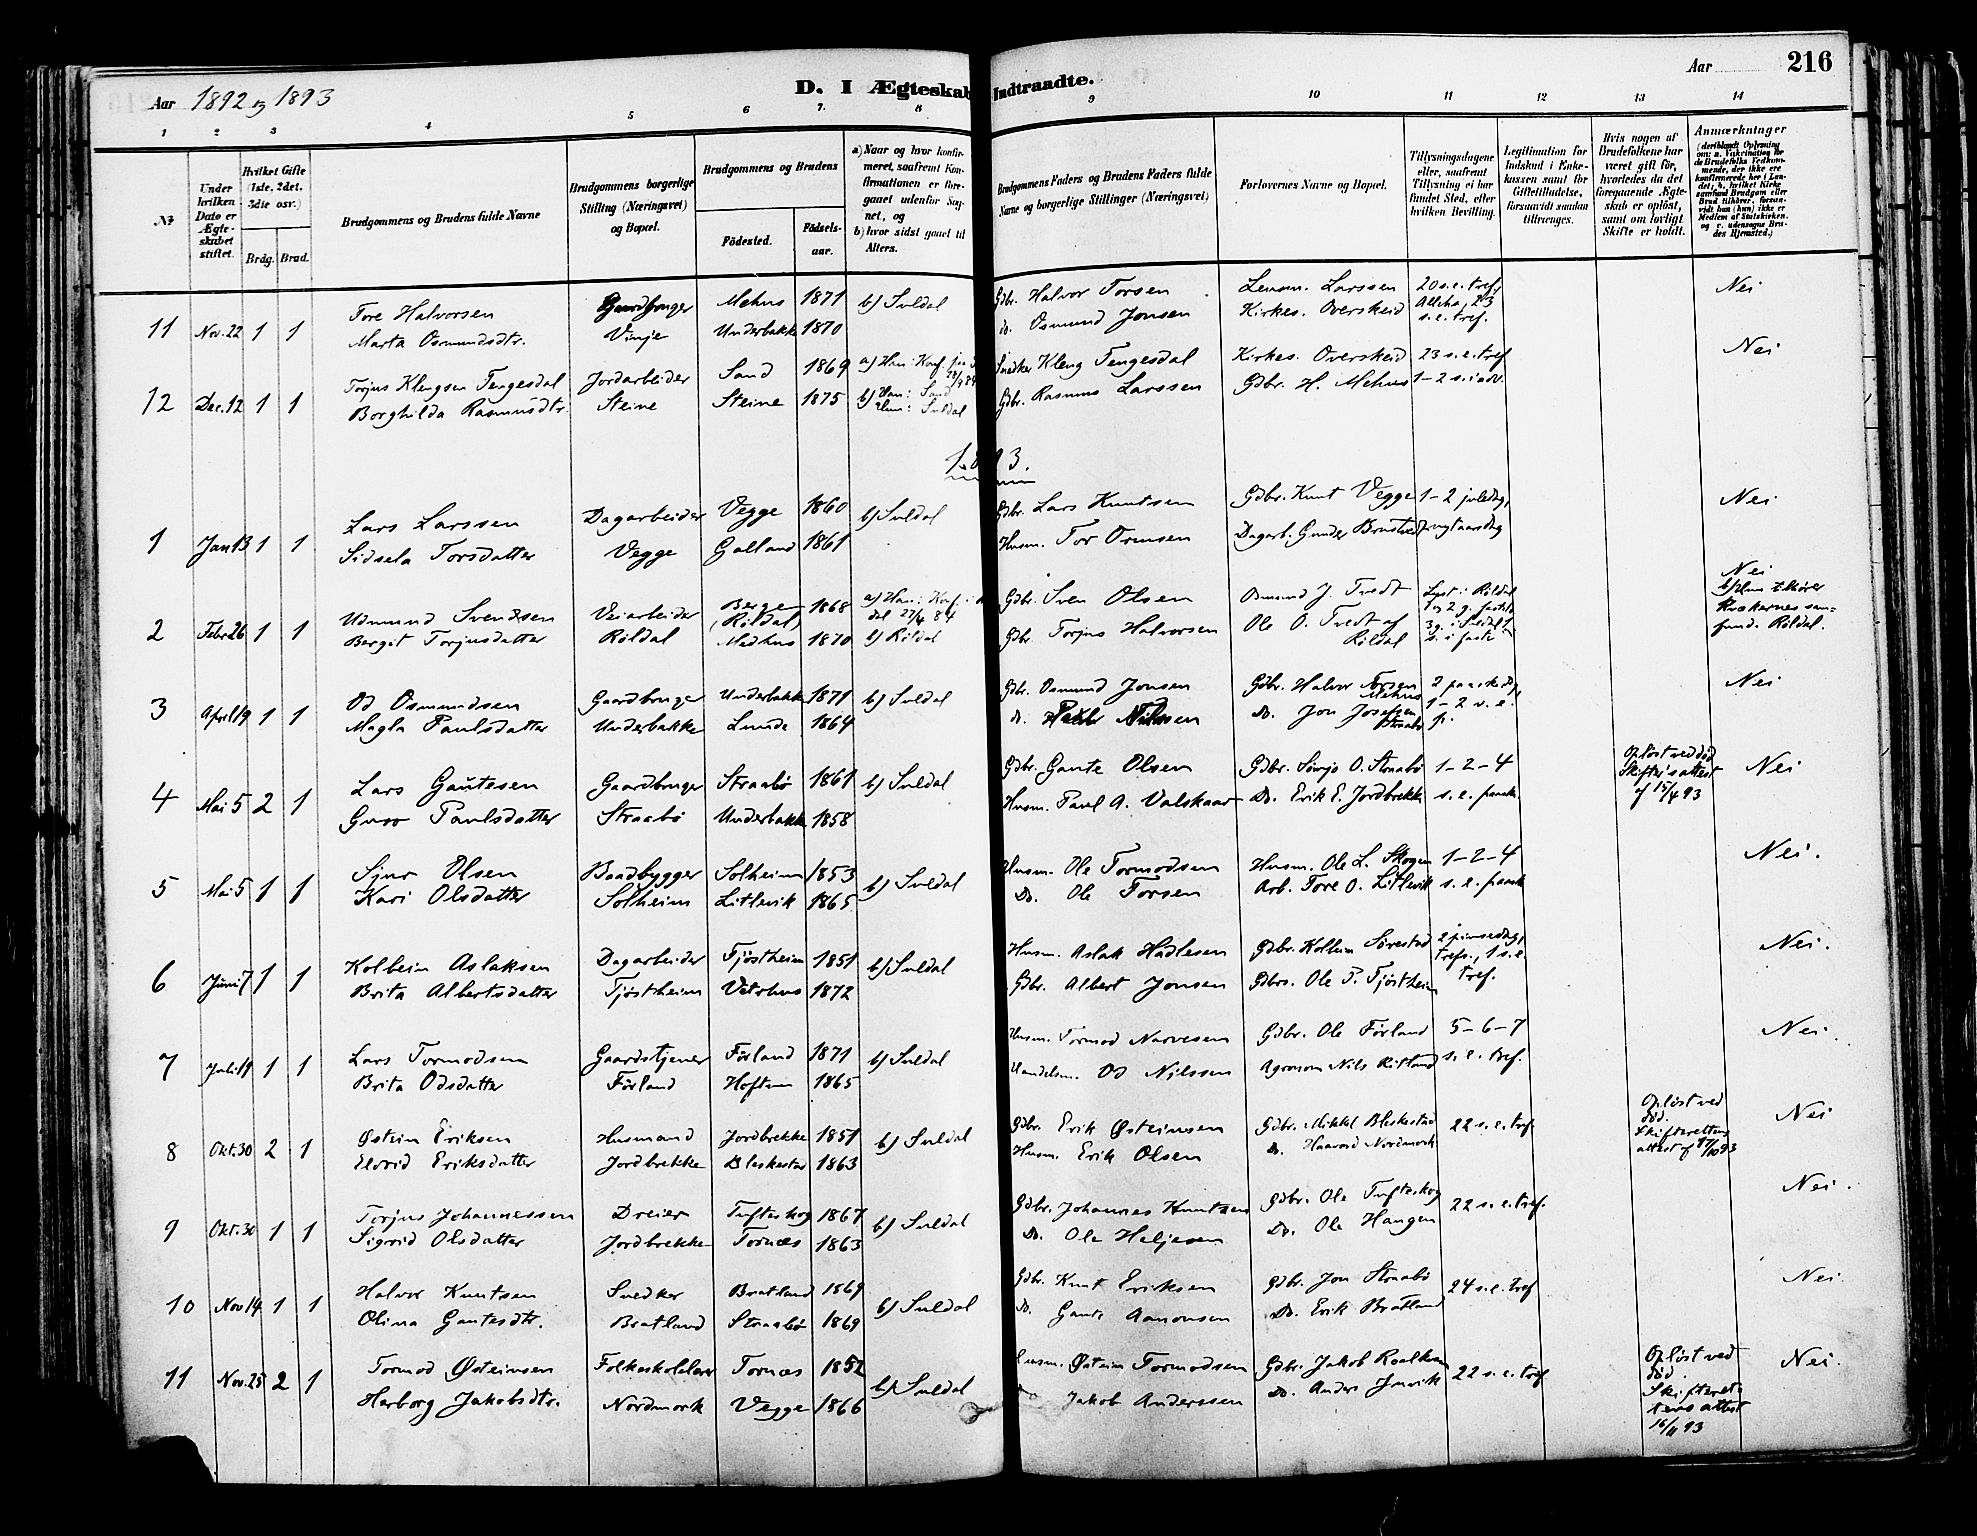 Aar 1892 og 1893
D. I Ægteskab Indtraadte.
Aar 216
1 2 3 4 5 6 7. 8 9 10 11 12 13 14
№
Under hvilken Dato er Ægteskabet stiftet.
Hvilket Gifte (1ste. 2det. 3die osv.)
Brdg. Brud.
Brudgommens og Brudens fulde Navne
Brudgommens borgerlige Stilling (Næringsvei) og Bopæl.
Brudgommens og Brudens
Födested.
Födselsaar.
a) Naar og hvor konfirmeret, saafremt Konfirmationen er foregaaet udenfor Sognet, og
b) hvor sidst gaaet til Alters.
Brudgommens Faders og Brudens Faders fulde Navne og borgerlige Stillinger (Næringsvei)
Forlovernes Navne og Bopæl.
Tillysningsdagene eller, saafremt Tillysning ei har fundet Sted, efter hvilken Bevilling.
Legitimation for Indskud i Enkekassen samt for Giftetilladelse, forsaavidt saadan tiltrænges.
Hvis nogen af Brudefolkene har været gift før, hvorledes da det foregaaende Ægteskab er opløst, samt om lovligt Skifte er holdt.
Anmærkninger
(deriblandt Oplysning om: a. Vakcination for de Brudefolks Vedkommende, der ikke ere konfirmerede her i Landet; b. hvilket Kirkesamfund Brudgom eller Brud tilhører, forsaavidt han (hun) ikke er Medlem af Statskirken. og c. udensogns Brudes Hjemsted.)
11 Nov. 22 1 1 Tore Halvorsen Gaardbruger Mehus 1871 b) Suldal Gdbr. Halvor Torsen Lensm. Larssen 20 s. e. tref, Alleha, 23 s. e. tref. Nei
Marta Osmundsdtr. Vinje Underbakke 1870 Do. Osmund Jonsen Kirkes. Overskeid
12 Dec. 12 1 1 Torjus Klengsen Tengesdal Jordarbeider Sand 1869 a) Han: Konf. Snedker Kleng Tengesdal Kirkes. Overskeid 23 s. e. tref Nei
Borghilda Rasmusdtr. Steine Steine 1875 b) Han: Sand Hun: Suldal Gdbr. Rasmus Larssen Gdbr. H. Mehus 1-2 s. i adv.
1893.
1 Jan 13 1 1 Lars Larssen Dagarbeider Vegge 1860 b) Suldal Gdbr. Lars Knutsen Gdbr. Knut Vegge 1-2 juledag, Nei
Sidsela Torsdatter Vegge Galland 1861 Husm. Tor Ormsen Dagarb. Gunder nytaarsdag
2 Febr 26 1 1 Udmund Svendsen Veiarbeider Berge (Röldal) 1868 a) Han: Konf. i Röldal 27/4 84 Gdbr. Sven Olsen Osmund J. Tvedt Lyst i Röldal Nei
Bergit Torjusdatter Röldal Medhus 1870 b) Röldal Gdbr. Torjus Halvorsen Ole O. Tvedt af Röldal 3 g. i Suldal 1 s. i faste
b) Hun tilhører Kvækernes samfund. Röldal.
3 April 19 1 1 Od Osmundsen Gaardbruger Underbakke 1871 b) Suldal Gdbr. Osmund Jonsen Gdbr. Halvor Torsen Mehus 2 paaskedag, Nei
Magla Paulsdatter Underbakke Lunde 1864 Do. Nilssen Do. Jon Josefsen Straabö 1-2 s. e. p.
4 Mai 5 2 1 Lars Gautesen Gaardbruger Straabö 1861 b) Suldal Gdbr. Gaute Olsen Gdbr. O. Straabö 1-2-4 Opløst ved död Skifte's attest af 15/4 93 Nei
Guro Paulsdatter Straabö Underbakke 1858 Husm. Paul A. Valskaar Do. Erik E. Jordbrekke s. e. paask.
5 Mai 5 1 1 Sjur Olsen Baadbygger Solheim 1853 b) Suldal Husm. Ole Tormodsen Husm. Ole L. Skogen 1-2-4 Nei.
Kari Olsdatter Solheim Litlevik 1865 Do. Ole Torsen Arb. Tore O. Litlevik s. e. paask
6 Juni 7 1 1 Kolbein Aslaksen Dagarbeider Tjöstheim 1851 b) Suldal Husm. Aslak Hadlesen Gdbr. Kolbein Sörestad 2 pinsedag, trefs., 1 s. e. tref. Nei.
Brita Albertsdatter Tjöstheim Vetrhus 1872 Gdbr. Albert Jonsen Gdbr. Ole P. Tjöstheim
7 Juli 19 1 1 Lars Tormodsen Gaardstjener Förland 1871 b) Suldal Husm. Tormod Narvesen Gdbr. Ole Förland 5-6-7 Nei.
Brita Odsdatter Förland Hoftun 1865 Handelsm. Od Nilssen Agronom Nils Ritland s. e. tref.
8 Okt. 30 2 1 Østein Eriksen Husmand Jordbrekke 1851 b) Suldal Gdbr. Erik Østeinsen Gdbr. Mikkel Bleskestad 22 s. e. tref Opløst ved död. Skifterettens attest af 17/10 93 Nei
Elvrid Eriksdatter Jordbrekke Bleskestad 1863 Husm. Erik Olsen Do. Haavard Nordmork
9 Okt. 30 1 1 Torjus Johannessen Dreier Tufteskog 1867 b) Suldal Gdbr. Johannes Knutsen Gdbr. Ole Tufteskog 22 s. e. tref. Nei.
Sigrid Olsdatter Jordbrekke Tornæs 1863 Do. Ole Heljesen Do. Ole Haugen
10 Nov 14 1 1 Halvor Knutsen Snedker Bratland 1869 b) Suldal Gdbr. Knut Eriksen Gdbr. Jon Straabö 24 s. e. tref Nei.
Olina Gautesdtr. Bratland Straabö 1869 Do. Gaute Aamonsen Do. Erik Bratland
11 Nov. 25 2 1 Tormod Østeinsen Folkeskolelærer Tornæs 1852 b) Suldal Husm. Østein Tormodsen Gdbr. Jakob Roalkvam 22 s. e. tref Opløst ved död. Skifterettens attest 16/11 93 Nei.
Herborg Jakobsdtr. Nordmork Vegge 1866 Jakob Anderssen Do. Anders Jnvik